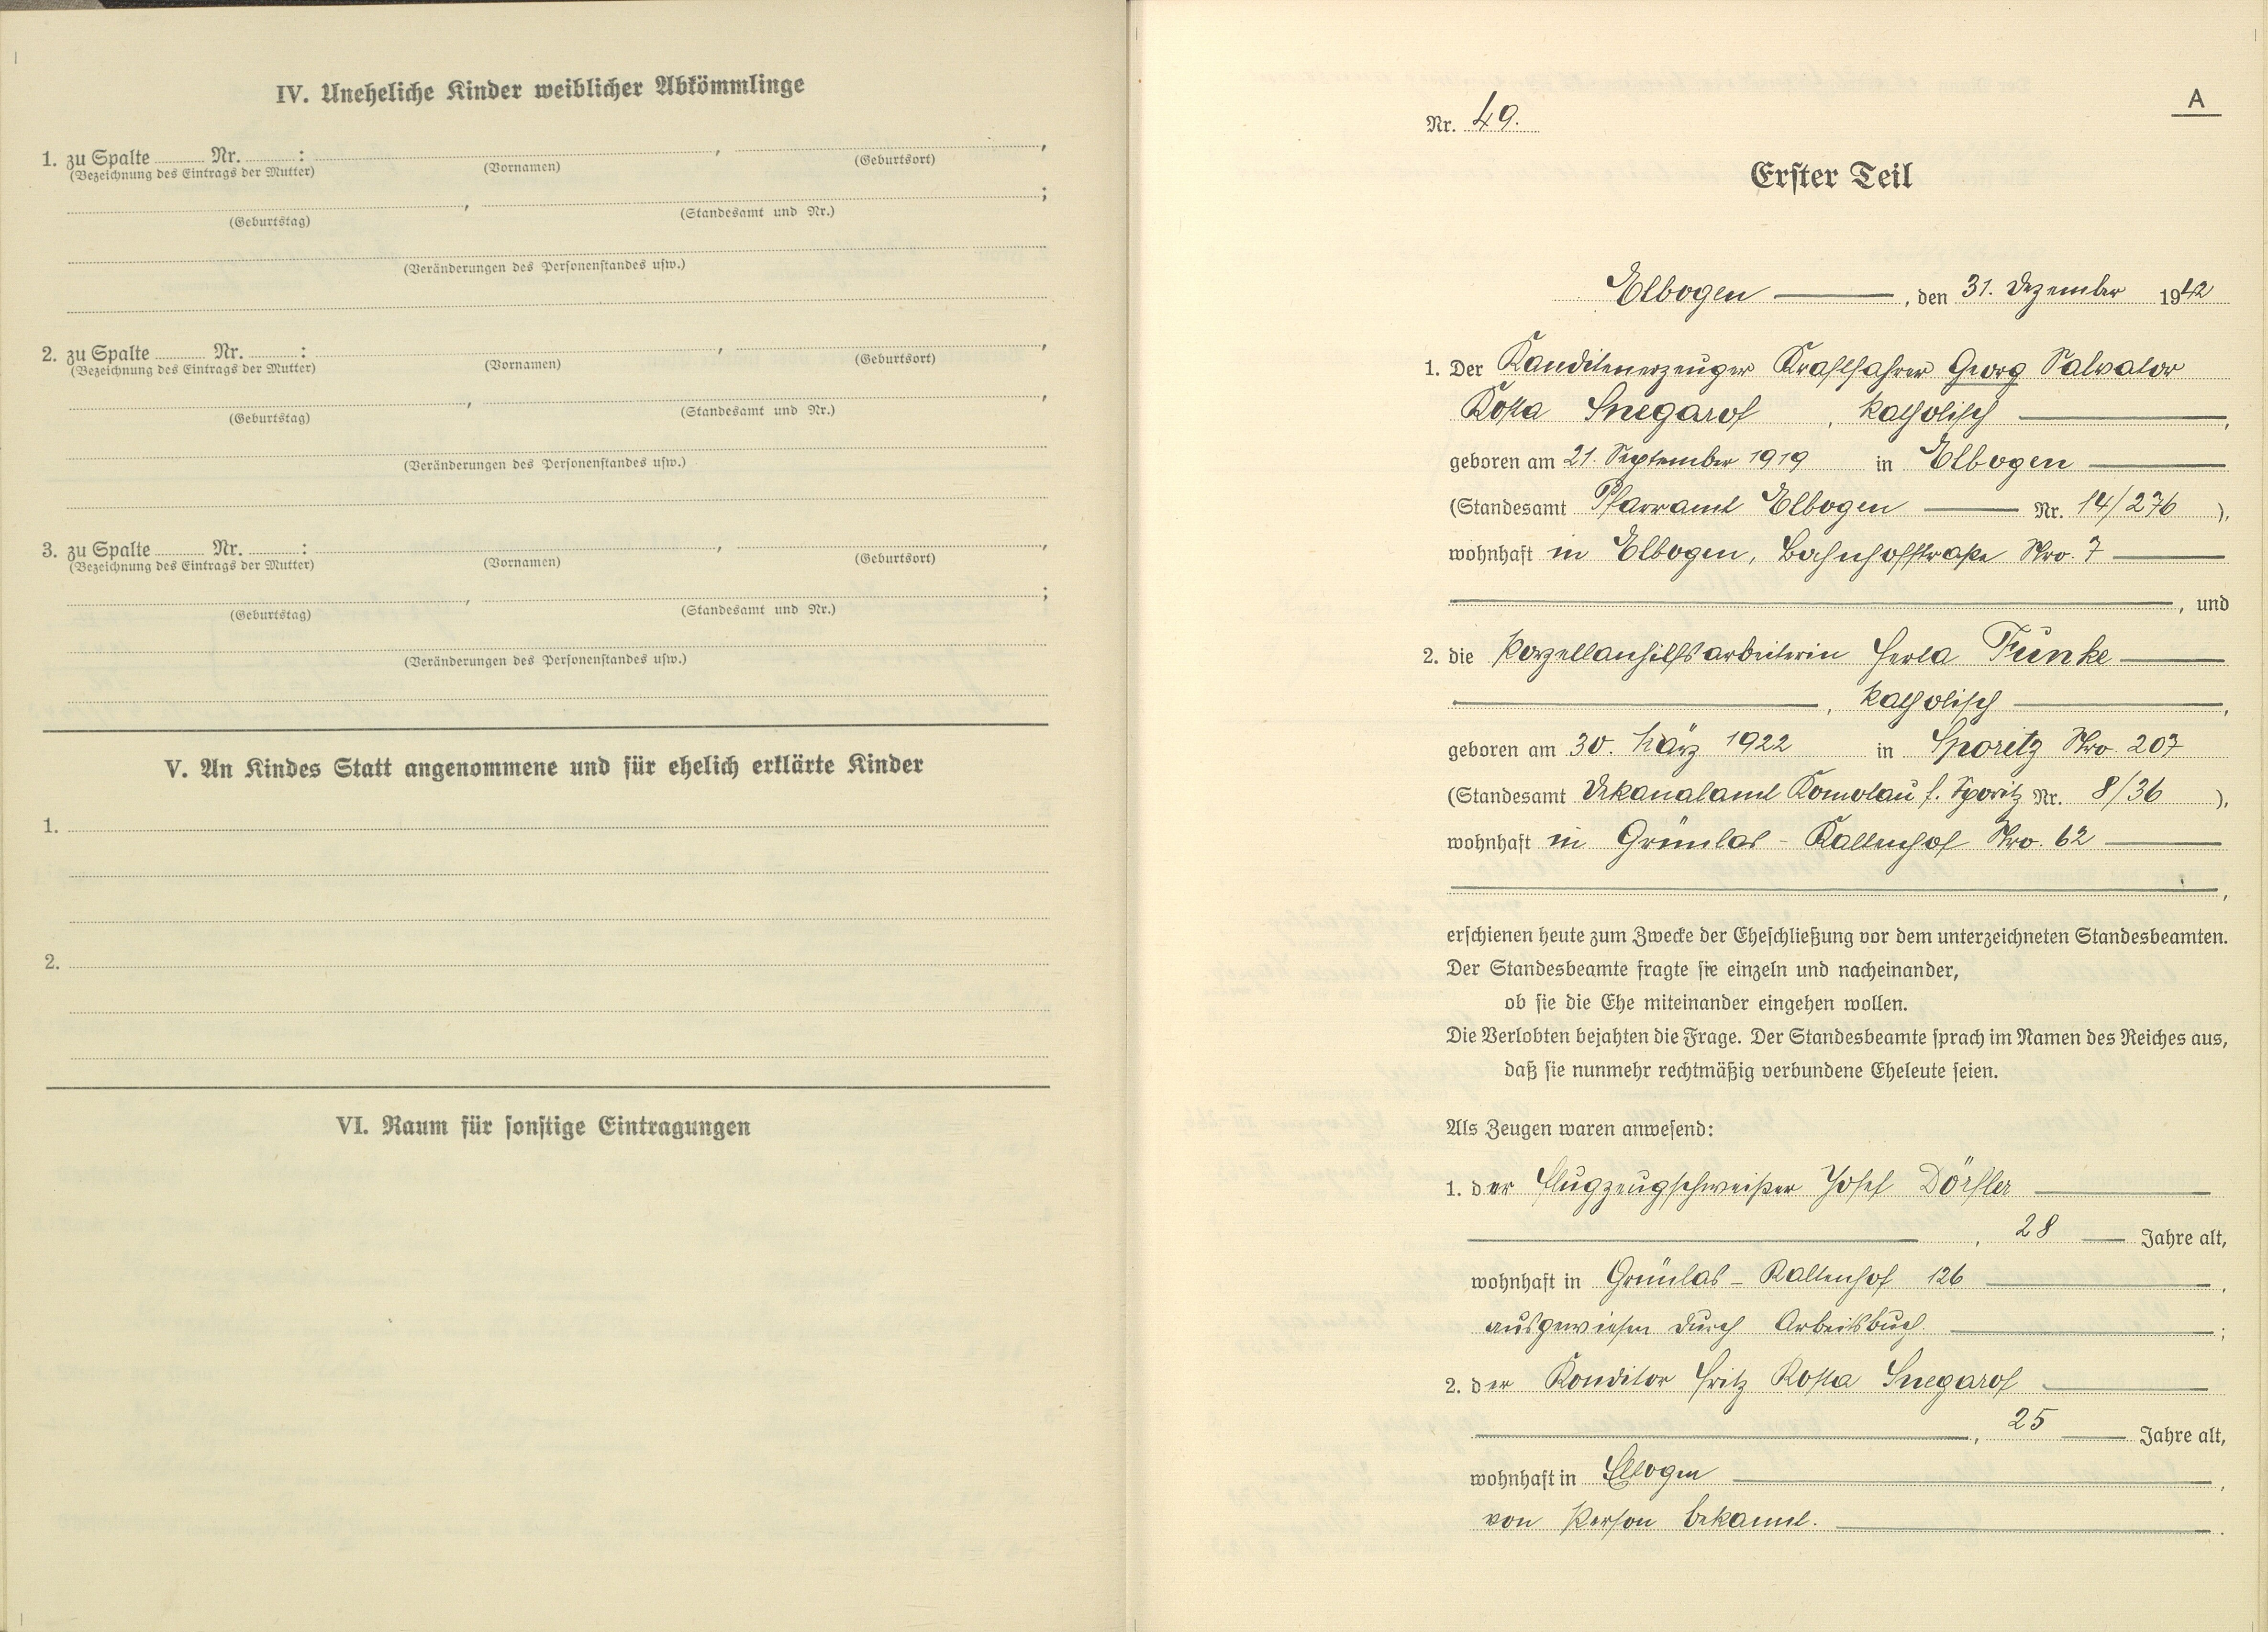 IV. Uneheliche Kinder weiblicher Abkömmlinge
1. zu Spalte ........ Nr. ........ : ........ , ........ ,
(Bezeichnung des Eintrags der Mutter) (Vornamen) (Geburtsort)
........ , ........ ;
(Geburtstag) (Standesamt und Nr.)
(Veränderungen des Personenstandes usw.)
2. zu Spalte ........ Nr. ........ : ........ , ........ ,
(Bezeichnung des Eintrags der Mutter) (Vornamen) (Geburtsort)
........ , ........ ,
(Geburtstag) (Standesamt und Nr.)
(Veränderungen des Personenstandes usw.)
3. zu Spalte ........ Nr. ........ : ........ , ........ ,
(Bezeichnung des Eintrags der Mutter) (Vornamen) (Geburtsort)
........ , ........ ;
(Geburtstag) (Standesamt und Nr.)
(Veränderungen des Personenstandes usw.)
V. An Kindes Statt angenommene und für ehelich erklärte Kinder
1.
2.
VI. Raum für sonstige Eintragungen
A
Nr. 49.
Erster Teil
Elbogen ——, den 31. Dezember 1942
1. Der Kanditenerzeuger Kraftfahrer Georg Salvator
Kosta Snegarof , katholisch ——,
geboren am 21. September 1919 in Elbogen ——
(Standesamt Pfarramt Elbogen —— Nr. 14/276 ),
wohnhaft in Elbogen, Bahnhofstraße Nro. 7 ——
——, und
2. die Porzellanhilfsarbeiterin Herta Funke ——
——, katholisch ——,
geboren am 30. März 1922 in Sporitz Nro. 207
(Standesamt Dekanalamt Komotau f. Sporitz Nr. 8/36 ),
wohnhaft in Grünlas - Kaltenhof Nro. 62 ——
——,
erschienen heute zum Zwecke der Eheschließung vor dem unterzeichneten Standesbeamten.
Der Standesbeamte fragte sie einzeln und nacheinander,
ob sie die Ehe miteinander eingehen wollen.
Die Verlobten bejahten die Frage. Der Standesbeamte sprach im Namen des Reiches aus,
daß sie nunmehr rechtmäßig verbundene Eheleute seien.
Als Zeugen waren anwesend:
1. der Flugzeugschweißer Josef Dörfler ——
——, 28 —— Jahre alt,
wohnhaft in Grünlas - Kaltenhof 126 ——,
ausgewiesen durch Arbeitsbuch. ——;
2. der Konditor Fritz Kosta Snegarof ——
——, 25 —— Jahre alt,
wohnhaft in Elbogen ——,
von Person bekannt. ——.